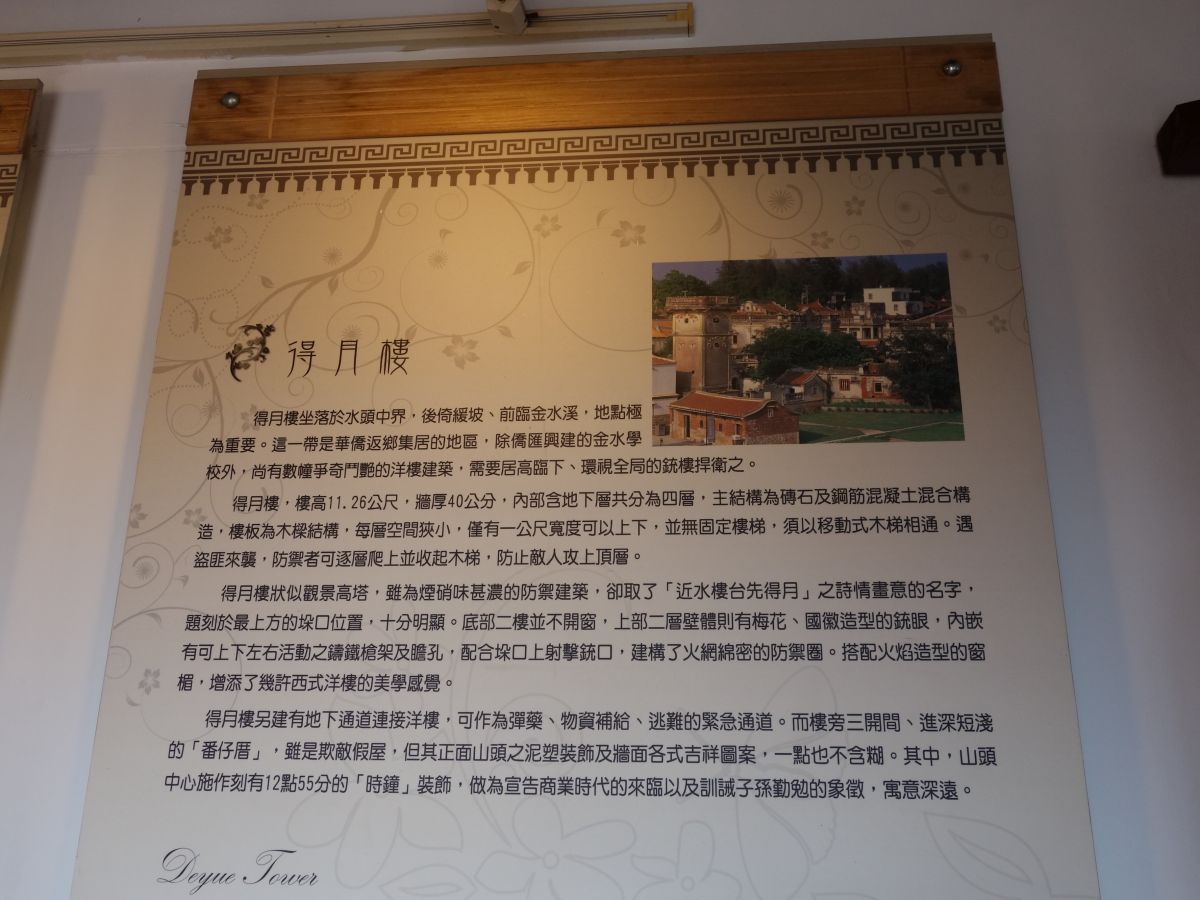 得月樓
得月樓坐落於水頭中界，後倚緩坡、前臨金水溪，地點極
為重要。這一帶是華僑返鄉集居的地區，除僑匯興建的金水學
校外，尚有數幢爭奇鬥艷的洋樓建築，需要居高臨下、環視全局的銃樓捍衛之。
得月樓，樓高11.26公尺，牆厚40公分，內部含地下層共分為四層，主結構為磚石及鋼筋混凝土混合構
造，樓板為木樑結構，每層空間狹小，僅有一公尺寬度可以上下，並無固定樓梯，須以移動式木梯相通。遇
盜匪來襲，防禦者可逐層爬上並收起木梯，防止敵人攻上頂層。
得月樓狀似觀景高塔，雖為煙硝味甚濃的防禦建築，卻取了「近水樓台先得月」之詩情畫意的名字，
題刻於最上方的垛口位置，十分明顯。底部二樓並不開窗，上部二層壁體則有梅花、國徽造型的銃眼，內嵌
有可上下左右活動之鑄鐵槍架及瞻孔，配合垛口上射擊銃口，建構了火網綿密的防禦圈。搭配火焰造型的窗
楣，增添了幾許西式洋樓的美學感覺。
得月樓另建有地下通道連接洋樓，可作為彈藥、物資補給、逃難的緊急通道。而樓旁三開間、進深短淺
的「番仔厝」，雖是欺敵假屋，但其正面山頭之泥塑裝飾及牆面各式吉祥圖案，一點也不含糊。其中，山頭
中心施作刻有12點55分的「時鐘」裝飾，做為宣告商業時代的來臨以及訓誡子孫勤勉的象徵，寓意深遠。
Deyue Tower